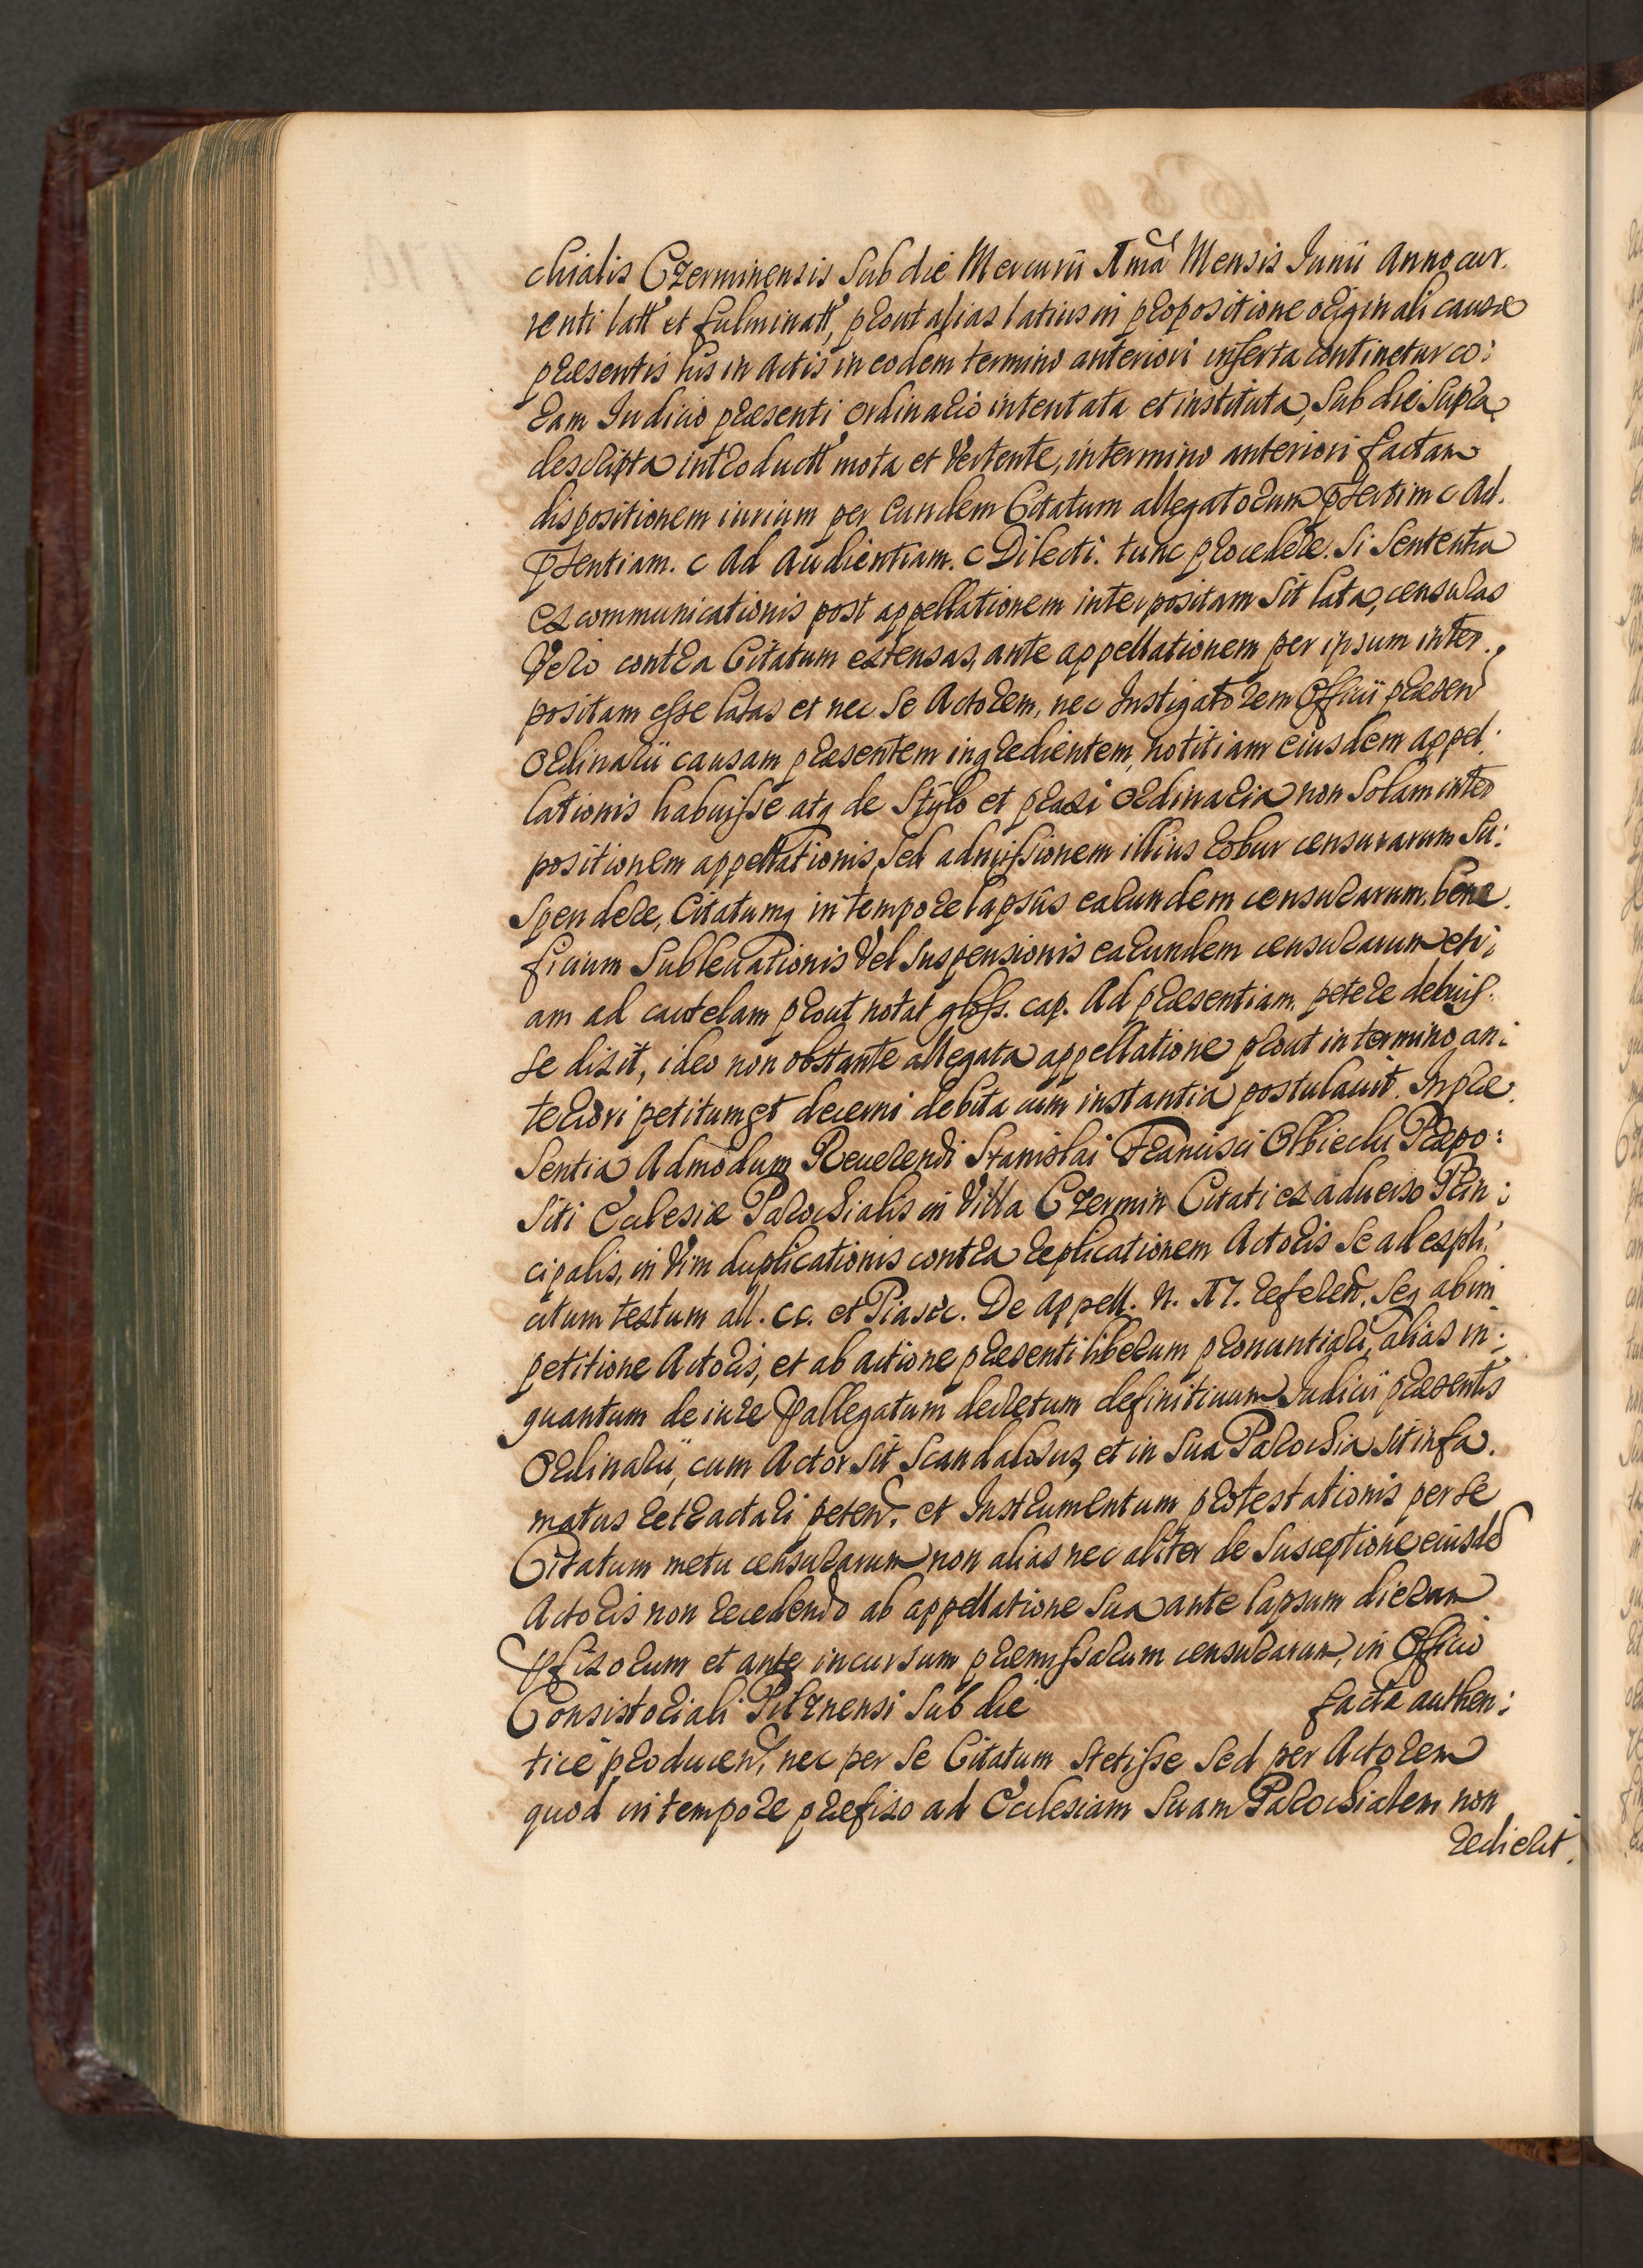 chialis Czerminensis sub die Mercurii XIma Mensis Junii Anno cur.
renti latt et fulminatt, prout alias latius in propositione originali causæ
præsentis his in Actis in eodem termino anteriori inserta continetur co:
ram Judicio præsenti ordinario intentata et instituta, sub die supra
descripta introductt mota et vertente, in termino anteriori factam
dispositionem iurium per eundem Citatum allegatorum psertim c Ad.
psentiam. c Ad Audientiam. c Dilecti. tunc procedere. si sententia
excommunicationis post appellationem interpositam sit lata, censuras
Vero contra Citatum extensas, ante appellationem per ipsum inter.
positam esse latas et nec se Actorem, nec Instigatorem Officii præsen
ordinarii causam præsentem ingredientem, notitiam eiusdem appel:
lationis habuisse atq de Stylo et praxi ordinaria non solam inter
positionem appellationis, sed admissionem illius robur censurarum su:
spendere, Citatumq in tempore lapsûs earundem censurarum, bene.
ficium subleuationis Vel suspensionis earundem censurarum eti:
am ad cautelam prout notat gloss. cap. Ad præsentiam. petere debuis:
se dixit, ideo non obstante allegata appellatione prout in termino an:
teriori petitum et decerni debita cum instantia postulauit. In præ.
sentia Admodum Reuerendi Stanislai Francisci Olbiechi Præpo:
siti Ecclesiæ Parochialis in Villa Czermin Citati ex aduerso Prin:
cipalis, in Vim duplicationis contra replicationem Actoris se ad expli:
citum textum all. cc. et Piasec. De Appell. N. 17. referen. seq ab im
petitione Actoris, et ab actione præsenti liberum pronuntiari, alias in:
quantum de iure pallegatum decretum definitiuum Judicii præsentis
Ordinarii, cum Actor sit scandalosus, et in sua Parochia sit infa.
matus retractari peten. et Instrumentum protestationis per se
Citatum metu censurarum non alias nec aliter de susceptione eiusd
Actoris non recedendo ab appellatione sua ante lapsum dierum
pfixorum et ante incursum præmissarum censurarum, in Officio
Consistoriali Pilznensi sub die facta authen:
ticè producen, nec per se Citatum stetisse sed per Actorem
quod in tempore præfixo ad Ecclesiam suam Parochialem non
redierit.